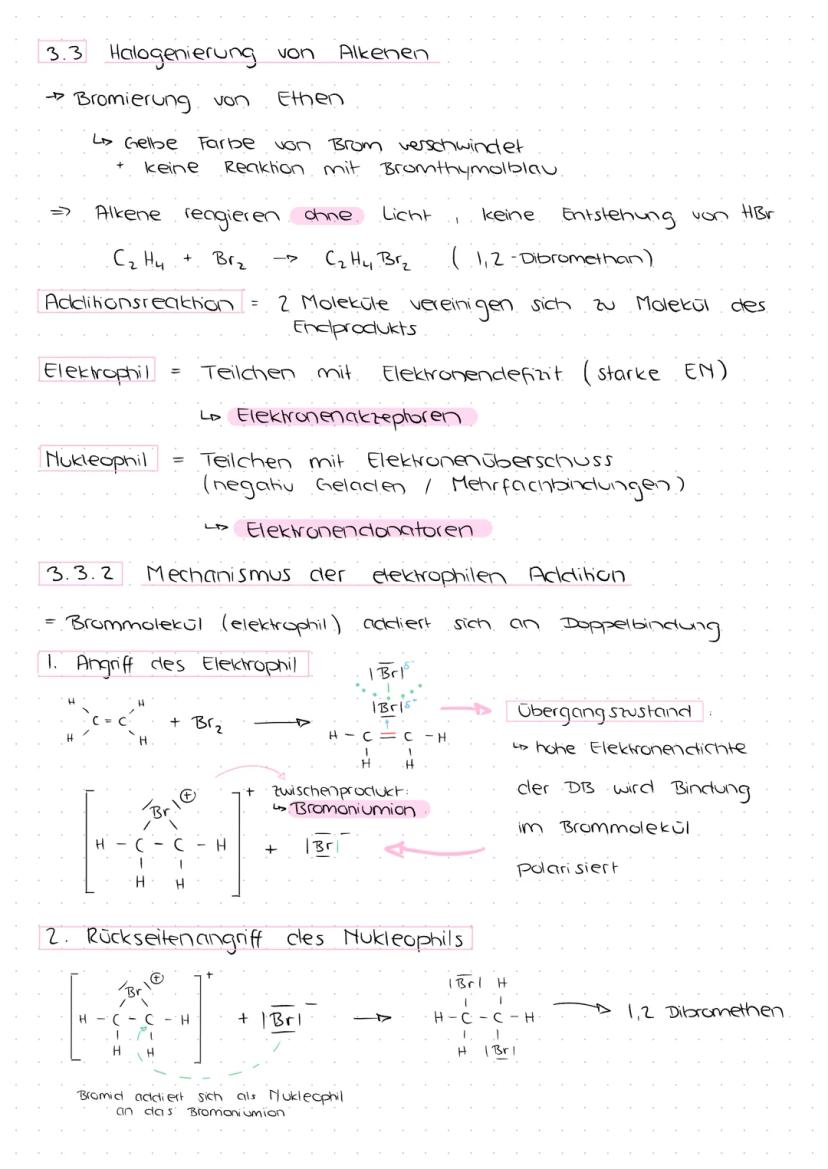 3.3 Halogenierung von Alkenen
→ Bromierung von Ethen
↳ Gelbe Farbe von Brom verschwindet
+ keine Reaktion mit Bromthymolblau
=> Alkene reagieren ohne Licht, keine Entstehung von HBr
C₂H₄ + Br₂ → C₂H₄Br₂ (1,2-Dibromethan)
Additionsreaktion = 2 Moleküle vereinigen sich zu Molekül des
Endprodukts
Elektrophil = Teilchen mit Elektronendefizit (starke EN)
↳ Elektronenakzeptoren
Nukleophil = Teilchen mit Elektronenüberschuss
(negativ Geladen / Mehrfachbindungen)
↳ Elektronendonatoren
3.3.2 Mechanismus der elektrophilen Addition
= Brommolekül (elektrophil) addiert sich an Doppelbindung
1. Angriff des Elektrophil
|Br| δ-
|Br| δ+
H H
C = C + Br₂ →
H H
H - C = C - H
H H
Übergangszustand:
↳ hohe Elektronendichte
der DB wird Bindung
im Brommolekül
polarisiert
Zwischenprodukt:
↳ Bromoniumion
Br ⊕ +
H - C - C - H + |Br|⁻
H H
2. Rückseitenangriff des Nukleophils
Br ⊕ +
H - C - C - H + |Br|⁻ →
H H
|Br| H
H - C - C - H → 1,2 Dibromethen
H |Br|
Bromid addiert sich als Nukleophil
an das Bromoniumion